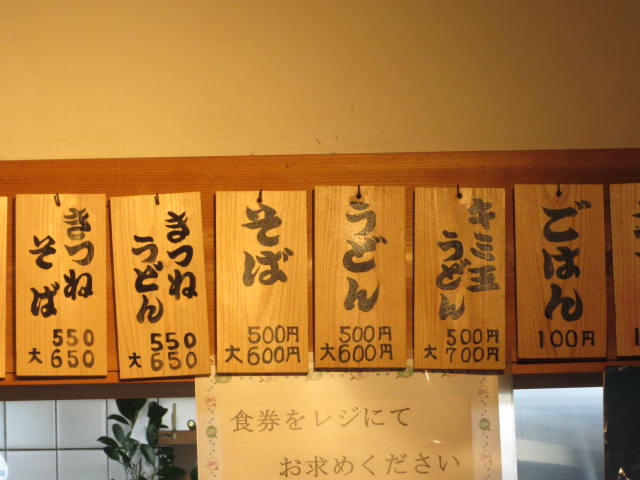 きつね
そば
550
大650
きつね
うどん
550
大650
そば
500円
大600円
うどん
500円
大600円
キミ玉
うどん
500円
大700円
ごはん
100円
食券をレジにて
お求めください